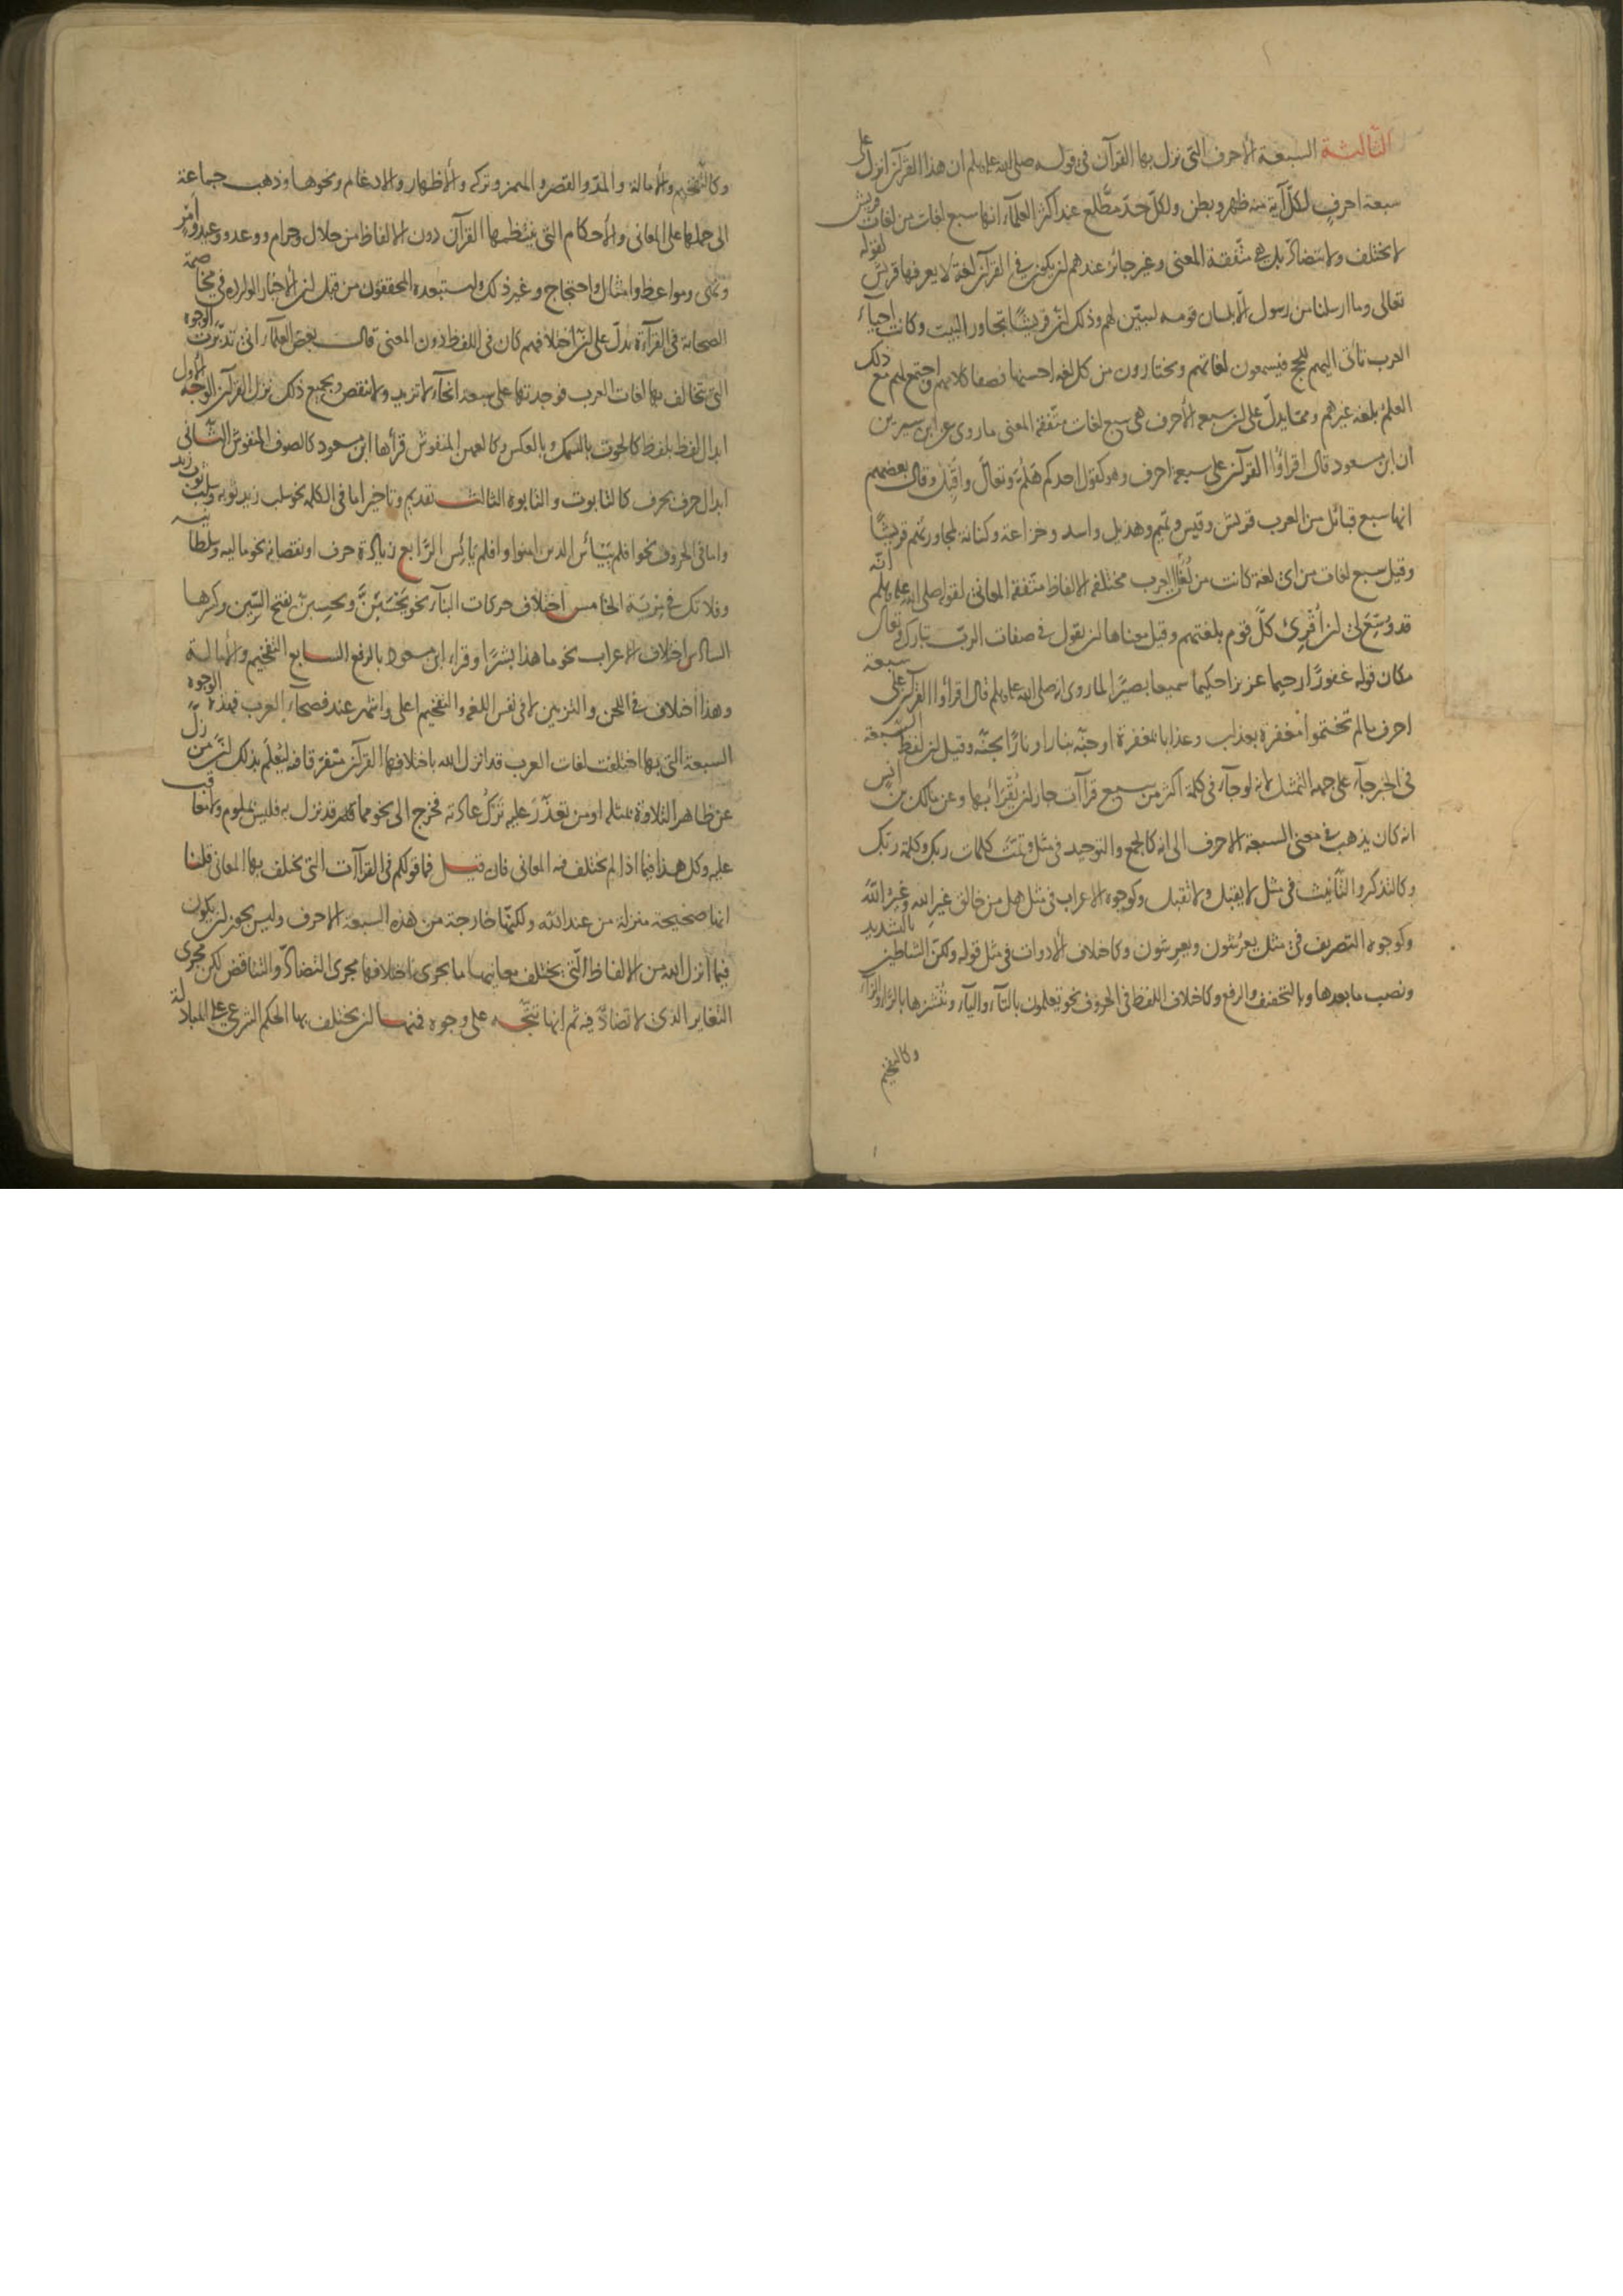 الثالثة السبعة الاحرف التى نزل بها القرآن فى قوله صلى الله عليه وسلم ان هذا القرآن انزل على
سبعة احرف لكل آية منه ظهر وبطن ولكل حدّ مطّلع عند اكثر العلمآء انها سبع لغات من لغات قريش
لا يختلف ولا يتضادّ بل هى متّفقة المعنى وغير جائز عندهم ان يكون فى القرآن لغة لا يعرفها قريش لقوله
تعالى وما ارسلنا من رسول الّا بلسان قومه ليبيّن لهم وذلك انّ قريشًا تجاور البيت وكانت احيآء
العرب تأتى اليهم للحج فيسمعون لغاتهم ويختارون من كل لغة احسنها فصفا كلامهم واجتمع لهم مع ذلك
العلم بلغة غيرهم وممّا يدلّ على ان سبعة الأحرف هى سبع لغات متّفقة المعنى ما روى عن ابن سيرين
ان ابن مسعود قال اقرأوا القرآن على سبعة احرف وهو كقول احدكم هَلُمَّ وتعالَ واَقبِل وقال بعضهم
انها سبع قبائل من العرب قريش وقيس وتميم وهذيل واسد وخزاعة وكنانة لمجاورتهم قريشًا
وقيل سبع لغات من اى لغة كانت من لُغات العرب مختلفة الالفاظ متّفقة المعانى لقوله صلى الله عليه وسلم انّه
قد وُسِّعَ لى ان اُقْرِئ كلّ قوم بلغتهم وقيل معناها ان يقول فى صفات الربّ تبارك وتعالى
مكان قوله غفورًا رحيما عزيزا حكيما سميعا بصيرًا لما روى انه صلى الله عليه وسلم قال اقرأوا القرآن على سبعة
احرف ما لم تختموا مغفرة بعذاب وعذابا بمغفرة او جنّه بنار او نارًا بجنّه وقيل ان لفظ السّبعة
فى الخبر جآء على جهة التمثيل لانه لو جآء فى كلمة اكثر من سبع قراآت جاز ان يُقرَأ بها وعن مالك بن انس
انه كان يذهب فى معنى السبعة الاحرف الى انه كالجمع والتوحيد فى مثل وتمّت كلمات ربك وكلمة ربك
وكالتذكير والتأنيث فى مثل لا يقبل ولا تقبل وكوجوه الاعراب فى مثل هل من خالق غيرِ الله وغيرُ الله
وكوجوه التصريف فى مثل يعرُشون ويعرِشون وكاختلاف الأدوات فى مثل قوله ولكنّ الشّاطين بالتشديد
ونصب ما بعدها وبالتخفيف والرفع وكاختلاف اللفظ فى الحروف نحو تعلمون بالتآء واليآء ونُنشزها بالرّاء والزآء
وكالتفخيم
وكالتّفخيم والأمالة والمدّ والقصر والهمز وتركه والأظهار والادغام ونحوها وذهب جماعة
الى حملها على المعانى والأحكام التى ينتظمها القرآن دون الالفاظ من حلال وحرام ووعد ووعيد وأمرٍ
ونهى ومواعظ وامثال واحتجاج وغير ذلك واستبعده المحققون من قبل ان الأخبار الوارده فى مخاصمة
الصحابة فى القرآءة يدلّ على ان اختلافهم كان فى اللفظ دون المعنى قال بعض العلمآء انى تدبّرت الوجوه
التى تتخالف بها لغات العرب فوجدتها على سبعة انحآء لا تزيد ولا تنقص وبجميع ذلك نزل القرآن الوجه الأول
ابدال لفظ بلفظ كالحوت بالسّمك وبالعكس وكالعهن المنفوش قرأها ابن مسعود كالصوف المنفوش الثانى
ابدال حرف بحرف كالتابوت والتابوه الثالث تقديم وتاخير اما فى الكلمة نحو سلب زيد ثوبه وسلب ثوب زيد
واما فى الحروف نحو افلم ييأس الذين امنوا وافلم يايَس الرّابع زيادة حرف او نقصانه نحو ماليه وسلطانيه
وفلا تك فى مِرية الخامس اختلاف حركات البنآء نحو يحْسَبَنّ ويحسِبنّ بفتح السّين وكسرها
السادس اختلاف الاعراب نحو ما هذا بشرًا وقرأ ابن مسعود بالرفع السابع التفخيم والأمالة
وهذا اختلاف فى اللحن والتزيين لا فى نفس اللغة والتفخيم اعلى واشهر عند فصحآء العرب فهذه الوجوه
السبعة التى بها اختلفت لغات العرب قد انزل الله باختلافها القرآن متفرّقا فيه ليُعلَم بذلك انّ من زلّ
عن ظاهر التلاوة بمثله او من تعذّرَ عليه تركُ عادته فخرج الى نحو مما قد نزل به فليس بملوم ولا معاقب
عليه وكل هذا فيما اذا لم يختلف فيه المعانى فان قيل فما قولكم فى القراآت التى يختلف بها المعانى قلنا
انها صحيحة منزلة من عند الله ولكنّها خارجة من هذه السبعة الاحرف وليس يجوز ان يكون
فيما انزل الله من الالفاظ الّتى يختلف معانيها ما يجرى اختلافها مجرى التضادّ والتناقض لكن مجرى
التغاير الذى لا تضادّ فيه ثم انها تتّجه على وجوه فمنها ان يختلف بها الحكم الشرعى على المبادلة